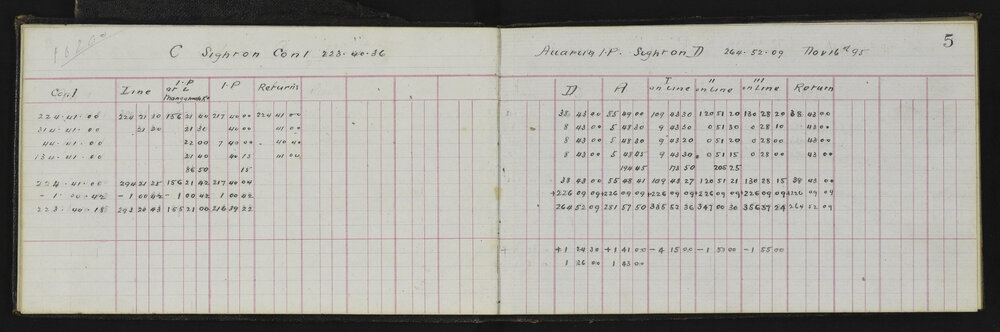 5
C Sight on Con1 223·40·36
Con1 Line I.P at L I.P Returns
224·41·00 224 21 30 156 21 40 217 40 00 224 41 00
314·41·00 21 20 21 30 40 00 41 00
44·41·00 22 00 7 40 00 40 40
134·41·00 21 40 40 15 41 00
86 50 15
224·41·00 294 21 25 156 21 42 217 40 04
-1 00·42 -1 00 42 -1 00 42 1 00 42
223·40·18 293 20 43 155 21 00 216 39 22
I.P. Sight on D 264·52·09 Nov 16th 95
D A I on Line II on Line III on Line Return
38 43 00 55 49 00 109 43 30 120 51 20 130 28 20 38 43 00
8 43 00 5 48 30 9 43 30 0 51 30 0 28 10 43 00
8 43 00 5 48 30 9 43 20 0 51 20 0 28 00 43 00
8 43 00 5 48 45 9 43 30 0 51 15 0 28 00 43 00
194 45 173 50 205 25
38 43 00 55 48 41 109 43 27 120 51 21 130 28 15 38 43 00
+226 09 09 +226 09 09 +226 09 09 +226 09 09 +226 09 09 +226 09 09
264 52 09 281 57 50 335 52 36 347 00 30 356 37 24 264 52 09
+1 24 30 +1 41 00 -4 15 00 -1 57 00 -1 55 00
1 26 00 1 43 00